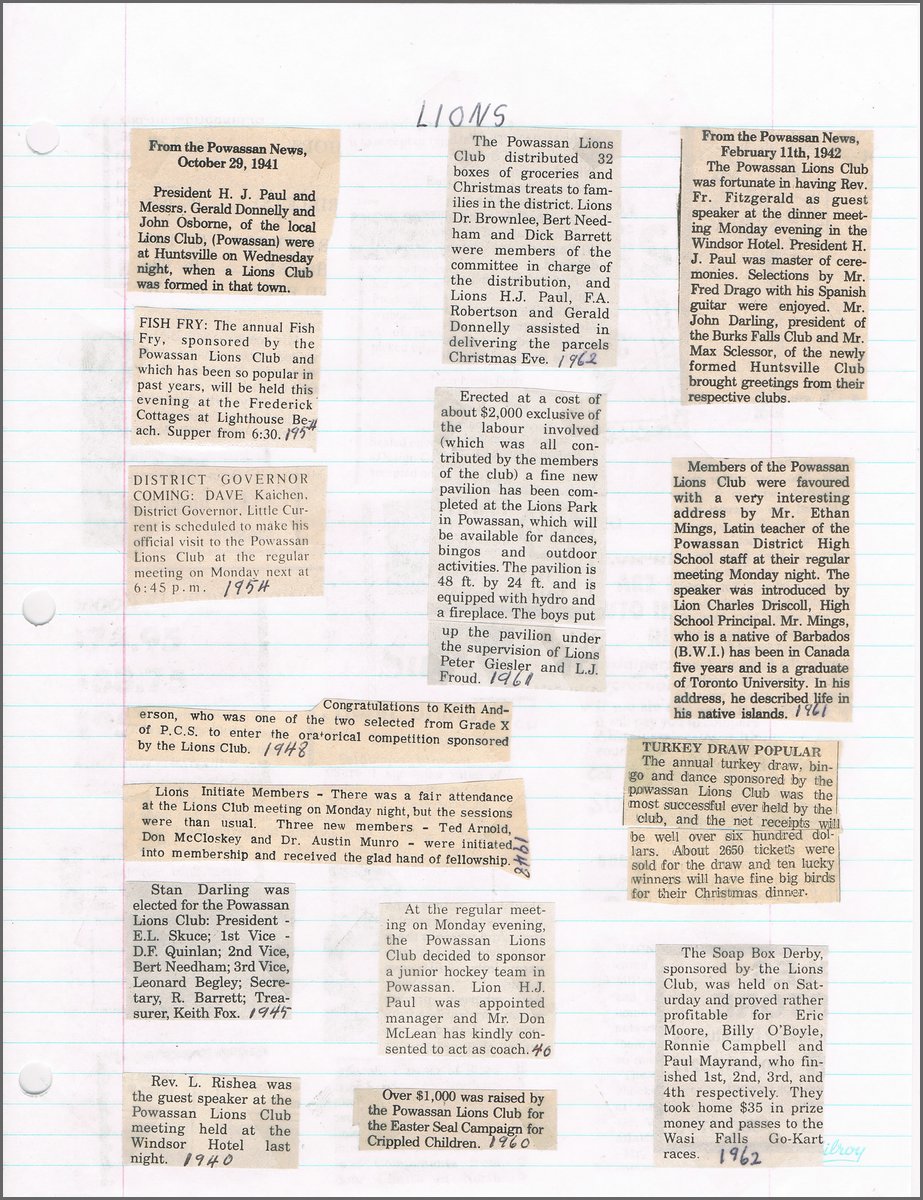 LIONS
From the Powassan News,
October 29, 1941
President H. J. Paul and
Messrs. Gerald Donnelly and
John Osborne, of the local
Lions Club, (Powassan) were
at Huntsville on Wednesday
night, when a Lions Club
was formed in that town.
FISH FRY: The annual Fish
Fry, sponsored by the
Powassan Lions Club and
which has been so popular in
past years, will be held this
evening at the Frederick
Cottages at Lighthouse Be-
ach. Supper from 6:30. 1954
DISTRICT GOVERNOR
COMING: DAVE Kaichen,
District Governor, Little Cur-
rent is scheduled to make his
official visit to the Powassan
Lions Club at the regular
meeting on Monday next at
6:45 p.m. 1954
The Powassan Lions
Club distributed 32
boxes of groceries and
Christmas treats to fam-
ilies in the district. Lions
Dr. Brownlee, Bert Need-
ham and Dick Barrett
were members of the
committee in charge of
the distribution, and
Lions H.J. Paul, F.A.
Robertson and Gerald
Donnelly assisted in
delivering the parcels
Christmas Eve. 1962
Erected at a cost of
about $2,000 exclusive of
the labour involved
(which was all con-
tributed by the members
of the club) a fine new
pavilion has been com-
pleted at the Lions Park
in Powassan, which will
be available for dances,
bingos and outdoor
activities. The pavilion is
48 ft. by 24 ft. and is
equipped with hydro and
a fireplace. The boys put
up the pavilion under
the supervision of Lions
Peter Giesler and L.J.
Froud. 1961
From the Powassan News,
February 11th, 1942
The Powassan Lions Club
was fortunate in having Rev.
Fr. Fitzgerald as guest
speaker at the dinner meet-
ing Monday evening in the
Windsor Hotel. President H.
J. Paul was master of cere-
monies. Selections by Mr.
Fred Drago with his Spanish
guitar were enjoyed. Mr.
John Darling, president of
the Burks Falls Club and Mr.
Max Sclessor, of the newly
formed Huntsville Club
brought greetings from their
respective clubs.
Members of the Powassan
Lions Club were favoured
with a very interesting
address by Mr. Ethan
Mings, Latin teacher of the
Powassan District High
School staff at their regular
meeting Monday night. The
speaker was introduced by
Lion Charles Driscoll, High
School Principal. Mr. Mings,
who is a native of Barbados
(B.W.I.) has been in Canada
five years and is a graduate
of Toronto University. In his
address, he described life in
his native islands. 1961
Congratulations to Keith And-
erson, who was one of the two selected from Grade X
of P.C.S. to enter the oratorical competition sponsored
by the Lions Club. 1948
Lions Initiate Members - There was a fair attendance
at the Lions Club meeting on Monday night, but the sessions
were than usual. Three new members - Ted Arnold,
Don McCloskey and Dr. Austin Munro - were initiated
into membership and received the glad hand of fellowship.
1948
TURKEY DRAW POPULAR
The annual turkey draw, bin-
go and dance sponsored by the
Powassan Lions Club was the
most successful ever held by the
club, and the net receipts will
be well over six hundred dol-
lars. About 2650 tickets were
sold for the draw and ten lucky
winners will have fine big birds
for their Christmas dinner.
Stan Darling was
elected for the Powassan
Lions Club: President -
E.L. Skuce; 1st Vice -
D.F. Quinlan; 2nd Vice,
Bert Needham; 3rd Vice,
Leonard Begley; Secre-
tary, R. Barrett; Trea-
surer, Keith Fox. 1945
At the regular meet-
ing on Monday evening,
the Powassan Lions
Club decided to sponsor
a junior hockey team in
Powassan. Lion H.J.
Paul was appointed
manager and Mr. Don
McLean has kindly con-
sented to act as coach. 40
The Soap Box Derby,
sponsored by the Lions
Club, was held on Sat-
urday and proved rather
profitable for Eric
Moore, Billy O'Boyle,
Ronnie Campbell and
Paul Mayrand, who fin-
ished 1st, 2nd, 3rd, and
4th respectively. They
took home $35 in prize
money and passes to the
Wasi Falls Go-Kart
races. 1962
ilroy
Rev. L. Rishea was
the guest speaker at the
Powassan Lions Club
meeting held at the
Windsor Hotel last
night. 1940
Over $1,000 was raised by
the Powassan Lions Club for
the Easter Seal Campaign for
Crippled Children. 1960